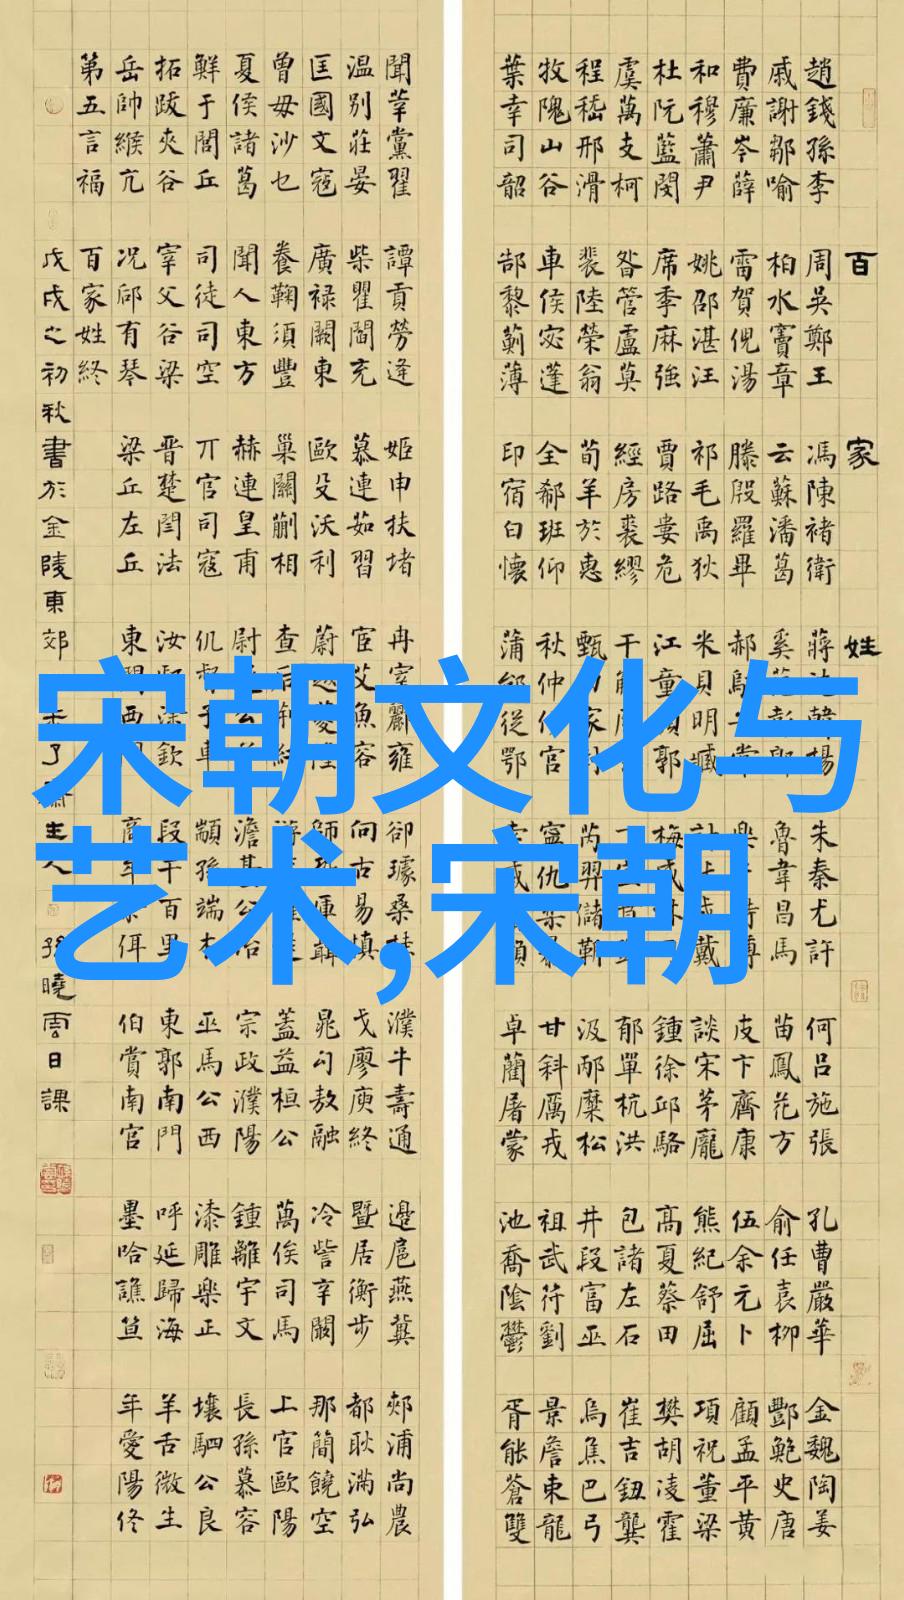 百家姓
趙錢孫李 周吳鄭王 馮陳褚衛 蔣沈韓楊 朱秦尤許 何呂施張 孔曹嚴華 金魏陶姜
戚謝鄒喻 柏水竇章 云蘇潘葛 奚范彭郎 魯韋昌馬 苗鳳花方 俞任袁柳 酆鮑史唐
費廉岑薛 雷賀倪湯 滕殷羅畢 郝鄔安常 樂于時傅 皮卞齊康 伍余元卜 顧孟平黃
和穆蕭尹 姚邵湛汪 祁毛禹狄 米貝明臧 計伏成戴 談宋茅龐 熊紀舒屈 項祝董梁
杜阮藍閔 席季麻強 賈路婁危 江童顏郭 梅盛林刁 鍾徐邱駱 高夏蔡田 樊胡凌霍
虞萬支柯 昝管盧莫 經房裘繆 干解應宗 丁宣賁鄧 郁單杭洪 包諸左石 崔吉鈕龔
程嵇邢滑 裴陸榮翁 荀羊於惠 甄麴家封 芮羿儲靳 汲邴糜松 井段富巫 烏焦巴弓
牧隗山谷 車侯宓蓬 全郗班仰 秋仲伊宮 寧仇欒暴 甘斜厲戎 祖武符劉 景詹束龍
葉幸司韶 郜黎薊薄 印宿白懷 蒲邰從鄂 索咸籍賴 卓藺屠蒙 池喬陰鬱 胥能蒼雙
聞莘黨翟 譚貢勞逄 姬申扶堵 冉宰酈雍 卻璩桑桂 濮牛壽通 邊扈燕冀 郟浦尚農
温別莊晏 柴瞿閻充 慕連茹習 宦艾魚容 向古易慎 戈廖庾終 暨居衡步 都耿滿弘
匡國文寇 廣祿闕東 歐殳沃利 蔚越夔隆 師鞏厙聶 晁勾敖融 冷訾辛闞 那簡饒空
曾毋沙乜 養鞠須豐 巢關蒯相 查后荊紅 游竺權逯 蓋益桓公 萬俟司馬 上官歐陽
夏侯諸葛 聞人東方 赫連皇甫 尉遲公羊 澹臺公冶 宗政濮陽 鍾離宇文 長孫慕容
鮮于閭丘 司徒司空 亓官司寇 仉督子車 顓孫端木 巫馬公西 漆雕樂正 壤駟公良
拓跋夾谷 宰父谷梁 晉楚閆法 汝鄢涂欽 段干百里 東郭南門 呼延歸海 羊舌微生
岳帥緱亢 況郈有琴 梁丘左丘 東門西門 商牟佘佴 伯賞南宮 墨哈譙笪 年愛陽佟
第五言福 百家姓終
戊戌之初秋書於金陵東郊未了齋主人孫曉雲日課
宋朝文化与
艺术,宋朝